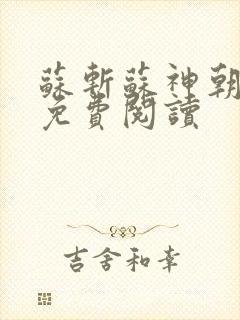 蘇斬蘇神朝
免費閱讀
吉舍和幸